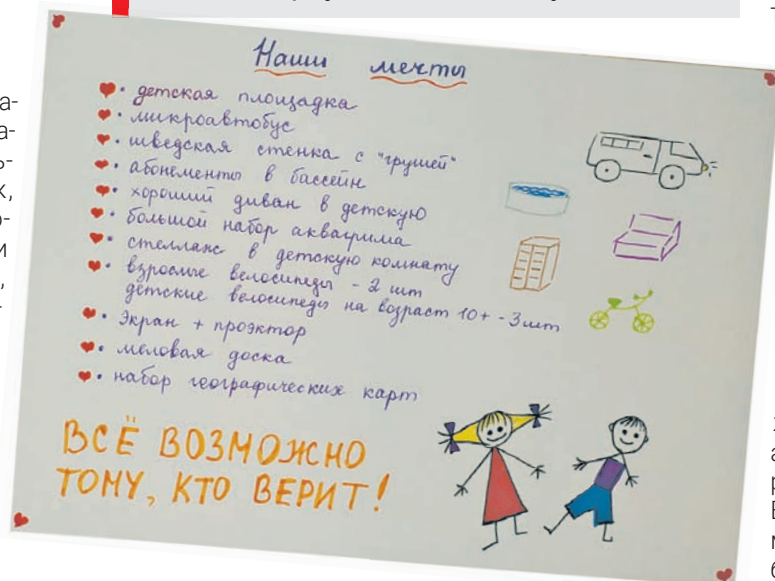 Наши мечты
• детская площадка
• микроавтобус
• шведская стенка с "грушей"
• абонементы в бассейн
• хороший диван в детскую
• большой набор аквагрима
• стеллаж в детскую комнату
• взрослые велосипеды - 2 шт
детские велосипеды на возраст 10+ - 3 шт
• Экран + проэктор
• меловая доска
• набор географических карт
ВСЁ ВОЗМОЖНО
ТОМУ, КТО ВЕРИТ!